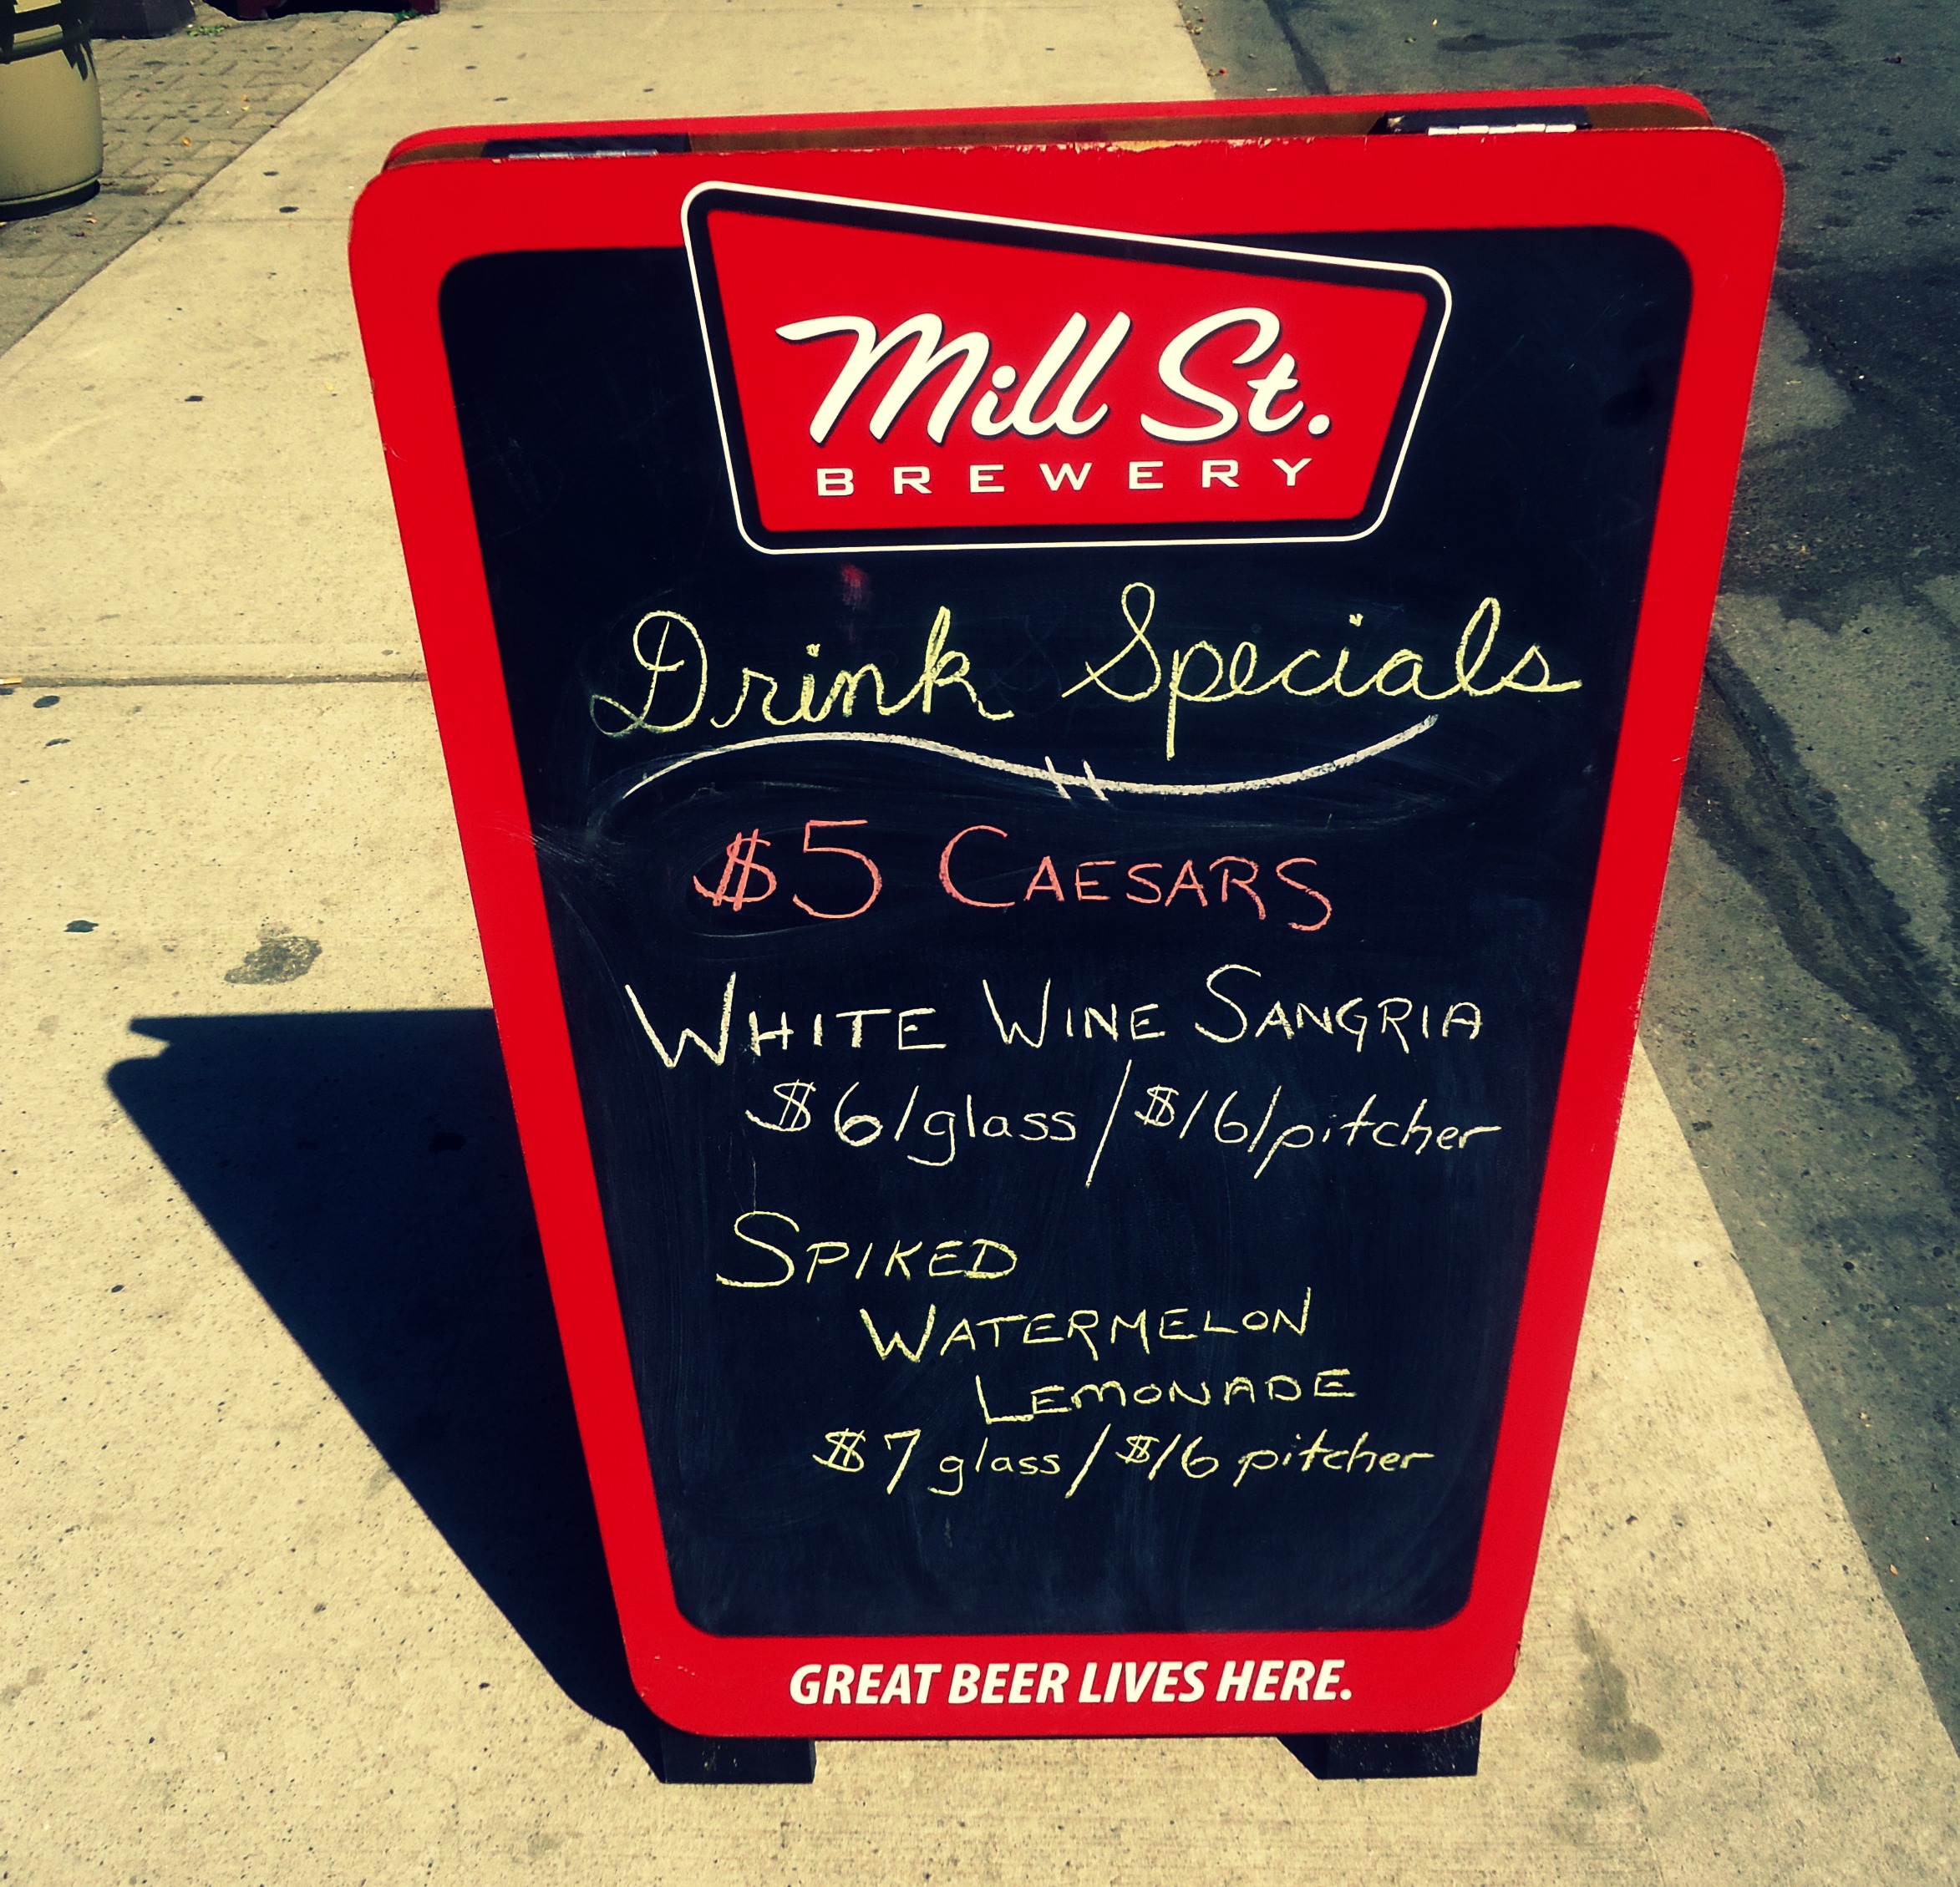 Mill St.
BREWERY
Drink Specials
$5 CAESARS
WHITE WINE SANGRIA
$6/glass/$16/pitcher
SPIKED
WATERMELON
LEMONADE
$7 glass/$16 pitcher
GREAT BEER LIVES HERE.